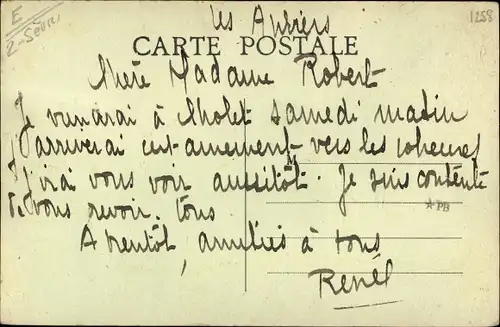 E
2-Sèvres
1258
Les Aubiers
CARTE POSTALE
Chère Madame Robert
Je viendrai à Cholet samedi matin
J'arriverai certainement vers les 10 heures
J'irai vous voir aussitôt. Je suis contente
de vous revoir. tous
A bientôt, amitiés à tous
René
*PB